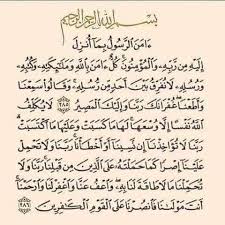 بسم الله الرحمن الرحيم
ءَامَنَ ٱلرَّسُولُ بِمَآ أُنزِلَ
إِلَيْهِ مِن رَّبِّهِۦ وَٱلْمُؤْمِنُونَۚ كُلٌّ ءَامَنَ بِٱللَّهِ وَمَلَٰٓئِكَتِهِۦ وَكُتُبِهِۦ
وَرُسُلِهِۦ لَا نُفَرِّقُ بَيْنَ أَحَدٍ مِّن رُّسُلِهِۦۚ وَقَالُوا۟ سَمِعْنَا
وَأَطَعْنَاۖ غُفْرَانَكَ رَبَّنَا وَإِلَيْكَ ٱلْمَصِيرُ ٢٨٥ لَا يُكَلِّفُ
ٱللَّهُ نَفْسًا إِلَّا وُسْعَهَاۚ لَهَا مَا كَسَبَتْ وَعَلَيْهَا مَا ٱكْتَسَبَتْۗ
رَبَّنَا لَا تُؤَاخِذْنَآ إِن نَّسِينَآ أَوْ أَخْطَأْنَاۚ رَبَّنَا وَلَا تَحْمِلْ
عَلَيْنَآ إِصْرًا كَمَا حَمَلْتَهُۥ عَلَى ٱلَّذِينَ مِن قَبْلِنَاۚ رَبَّنَا وَلَا
تُحَمِّلْنَا مَا لَا طَاقَةَ لَنَا بِهِۦۖ وَٱعْفُ عَنَّا وَٱغْفِرْ لَنَا وَٱرْحَمْنَآۚ
أَنتَ مَوْلَىٰنَا فَٱنصُرْنَا عَلَى ٱلْقَوْمِ ٱلْكَٰفِرِينَ ٢٨٦